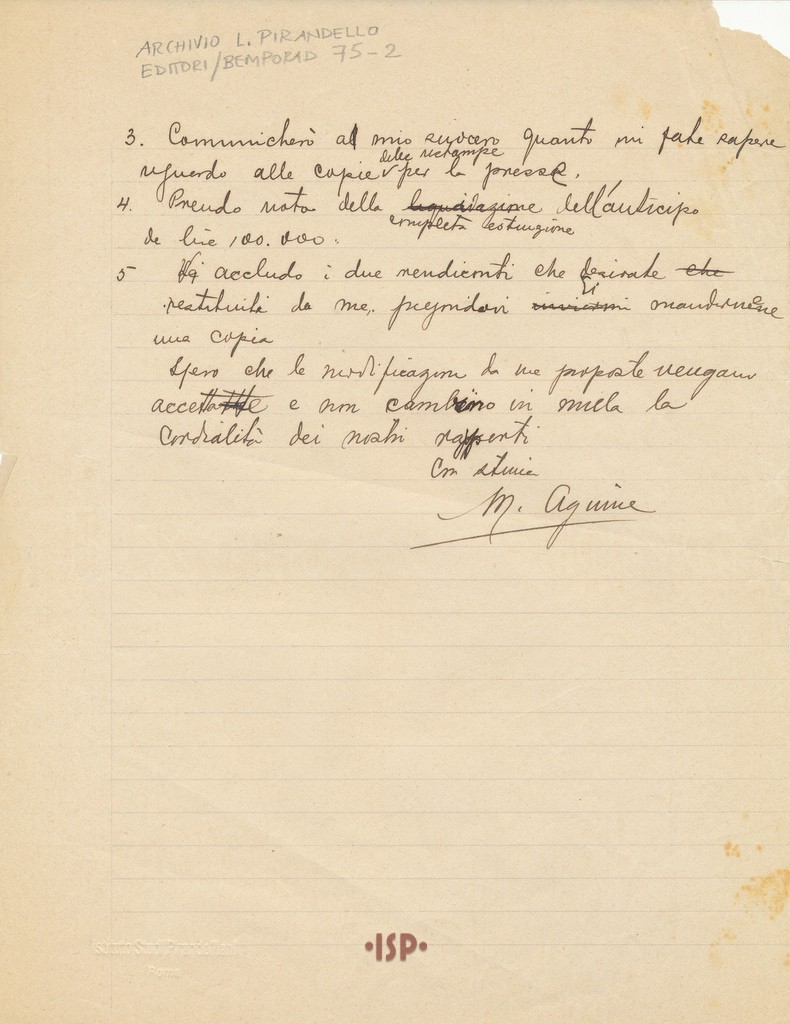 ARCHIVIO L. PIRANDELLO
EDITORI/BEMPORAD 75-2
3. Comunicherò al mio suocero quanto mi fate sapere
delle ristampe
riguardo alle copie per la presse.
4. Prendo nota della liquidazione dell'anticipo
completa estinzione
de lire 100.000.
5 Vi accludo i due rendiconti che desirate che
restituiti da me, pregandovi inviarmi mandarmene
una copia
Spero che le modificazioni da me proposte vengano
accettate e non cambino in nulla la
cordialità dei nostri rapporti
Con stima
M. Aguirre
Istituto Studi Pirandelliani
Roma
•ISP•